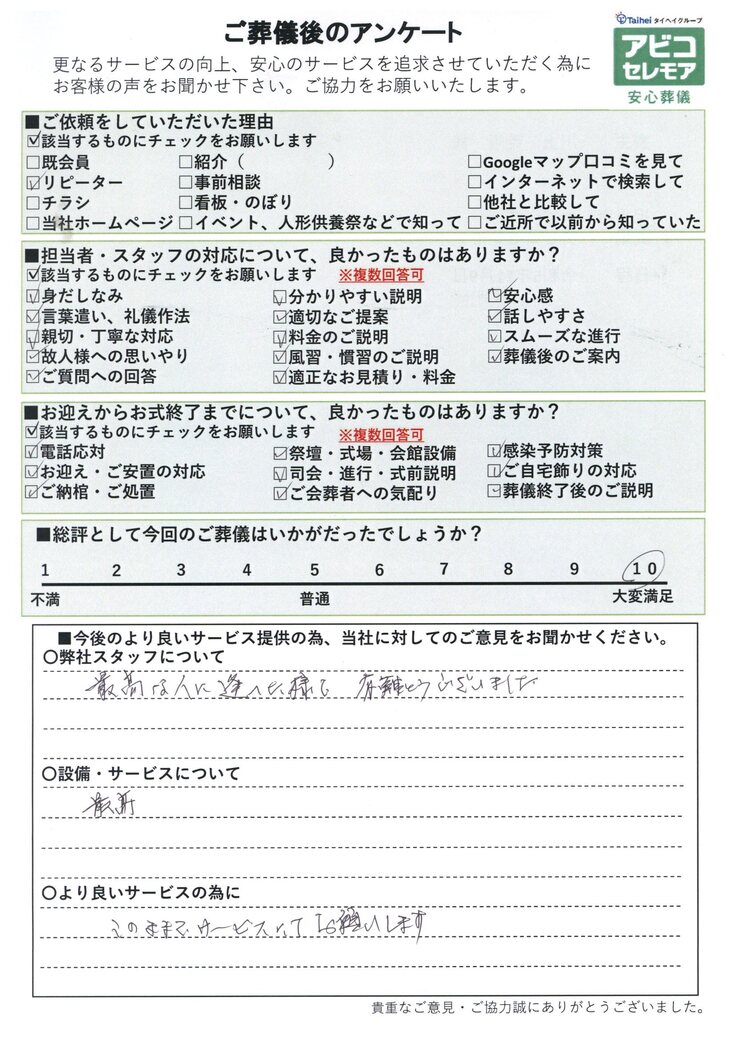 ご葬儀後のアンケート
Taihei タイヘイグループ
アビコ
セレモア
安心葬儀
更なるサービスの向上、安心のサービスを追求させていただく為に
お客様の声をお聞かせ下さい。ご協力をお願いいたします。
■ご依頼をしていただいた理由
☑該当するものにチェックをお願いします
□既会員 □紹介（　　　　　） □Googleマップ口コミを見て
☑リピーター □事前相談 □インターネットで検索して
□チラシ □看板・のぼり □他社と比較して
□当社ホームページ □イベント、人形供養祭などで知って □ご近所で以前から知っていた
■担当者・スタッフの対応について、良かったものはありますか？
☑該当するものにチェックをお願いします ※複数回答可
☑身だしなみ ☑分かりやすい説明 ☑安心感
☑言葉遣い、礼儀作法 ☑適切なご提案 ☑話しやすさ
☑親切・丁寧な対応 ☑料金のご説明 ☑スムーズな進行
☑故人様への思いやり ☑風習・慣習のご説明 ☑葬儀後のご案内
☑ご質問への回答 ☑適正なお見積り・料金
■お迎えからお式終了までについて、良かったものはありますか？
☑該当するものにチェックをお願いします ※複数回答可
☑電話応対 ☑祭壇・式場・会館設備 ☑感染予防対策
☑お迎え・ご安置の対応 ☑司会・進行・式前説明 ☑ご自宅飾りの対応
☑ご納棺・ご処置 ☑ご会葬者への気配り ☑葬儀終了後のご説明
■総評として今回のご葬儀はいかがだったでしょうか？
1 2 3 4 5 6 7 8 9 10
不満 普通 大変満足
■今後のより良いサービス提供の為、当社に対してのご意見をお聞かせください。
〇弊社スタッフについて
最高な人に逢えた様で 有難とうございました
〇設備・サービスについて
最新
〇より良いサービスの為に
このままでサービスにてお願いします
貴重なご意見・ご協力誠にありがとうございました。